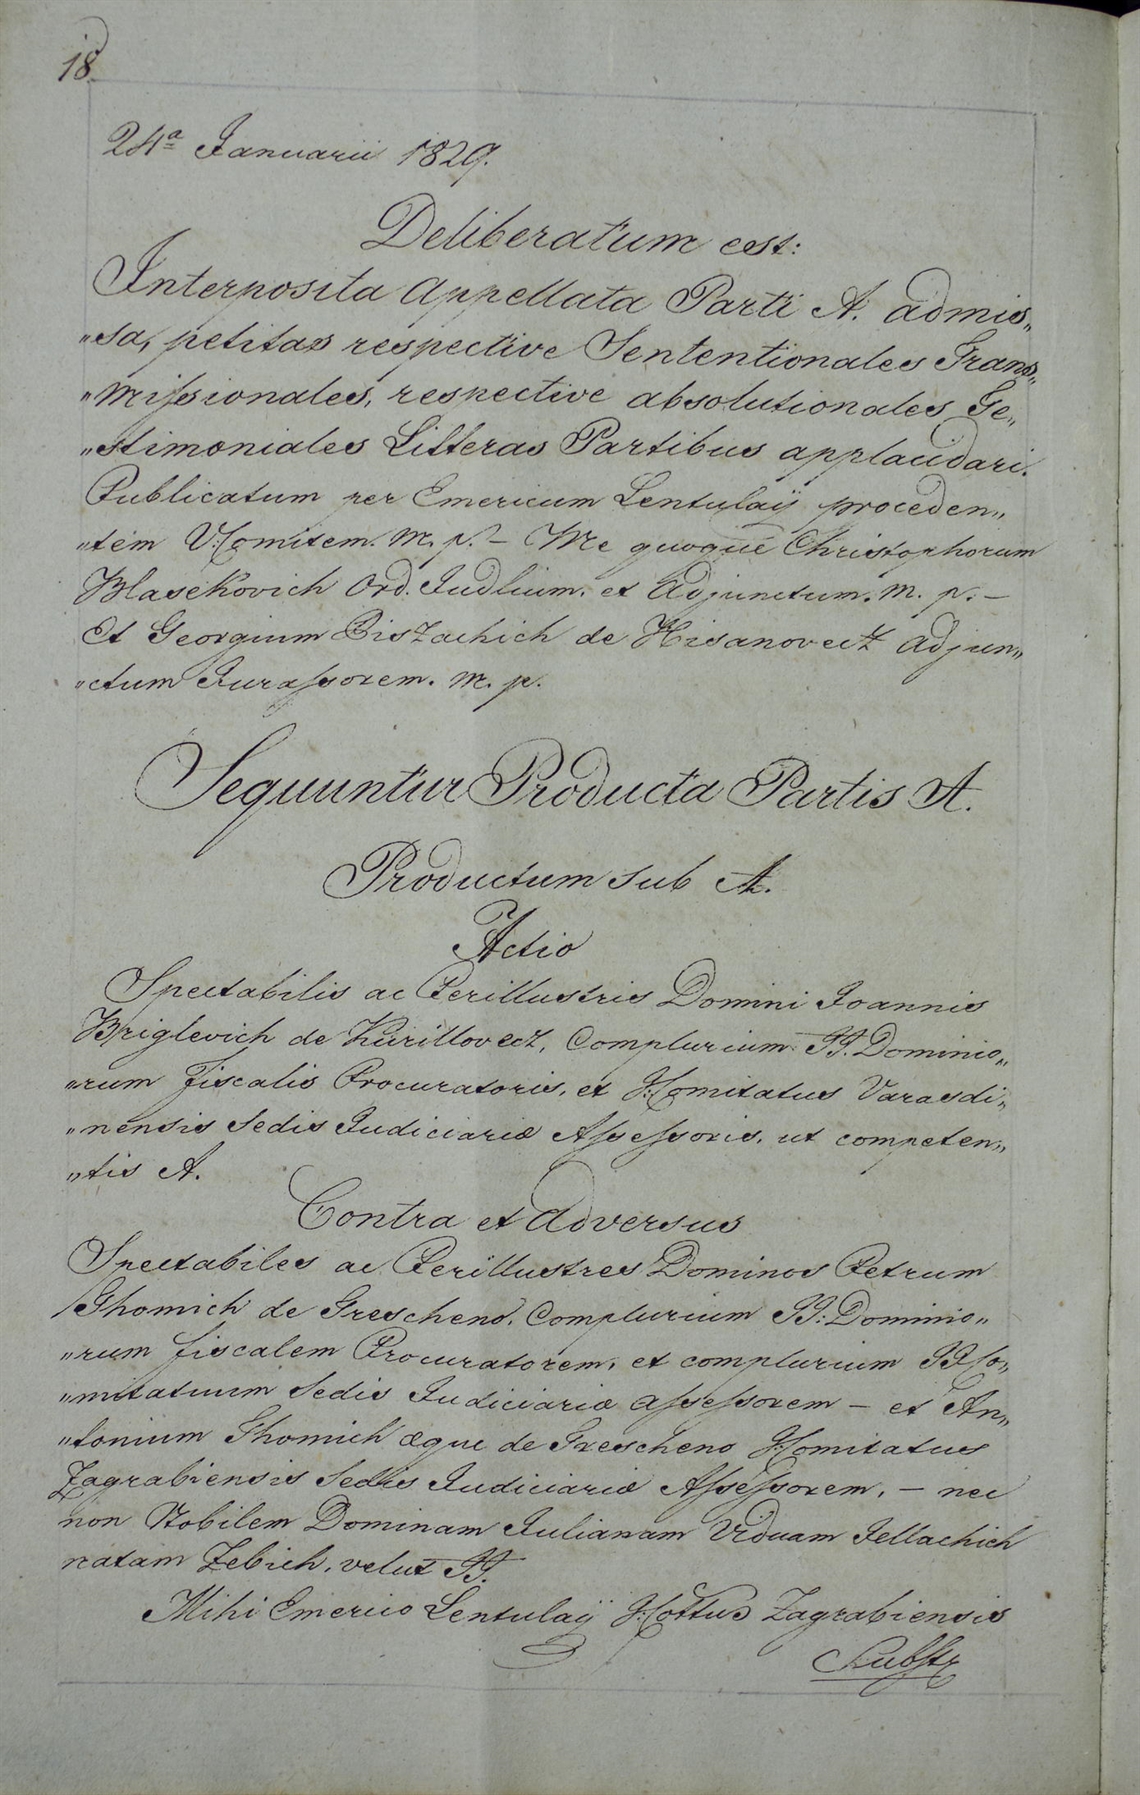 18
24ª Januarii 1829.
Deliberatum est:
Interposita Appellata Parti A. admis„
„sa, petitas respective Sententionales Trans„
„missionales, respective absolutionales Te„
„stimoniales Litteras Partibus applaudari.
Publicatum per Emericum Lentulaÿ proceden„
„tem V:Comitem. m. p. – Me quoque Christophorum
Blasekovich Ord. Judlium. et Adjunctum. m. p. –
Et Georgium Piszachich de Hisanovecz adjun„
„ctum Jurassorem. m. p.
Sequuntur Producta Partis A.
Productum sub A.
Actio
Spectabilis ac Perillustris Domini Joannis
Briglevich de Kurillovecz, Complurium TT. Domino„
„rum Fiscalis Procuratoris, et I:Comitatus Varasdi„
„nensis Sedis Judiciariæ Assessoris, ut competen„
„tis A.
Contra et Adversus
Spectabiles ac Perillustres Dominos Petrum
Thomich de Trescheno, Complurium TT: Domino„
„rum fiscalem Procuratorem, et complurium II Co„
„mitatuum Sedis Judiciariæ assessorem – et An„
„tonium Thomich æque de Trescheno I:Comitatus
Zagrabiensis Sedis Judiciariæ Assessorem, – nec
non Nobilem Dominam Julianam Viduam Jellachich
natam Zebich, velut II.
Mihi Emerico Lentulaÿ I:Cottus Zagrabiensis
Substr